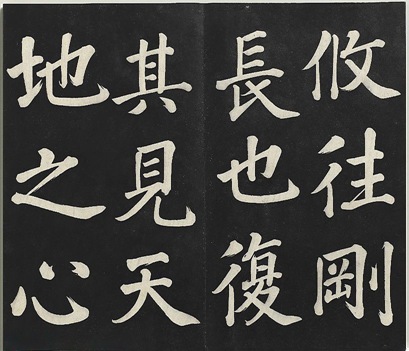 攸往剛
長也復
其見天
地之心